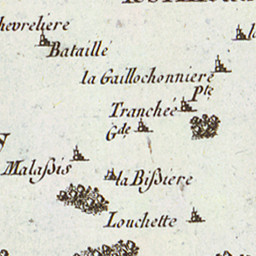 hevreliere
Bataillé
la Gaillochonniere
Pte
Tranchée
Gde
Malaßis
la Bißiere
Louchette